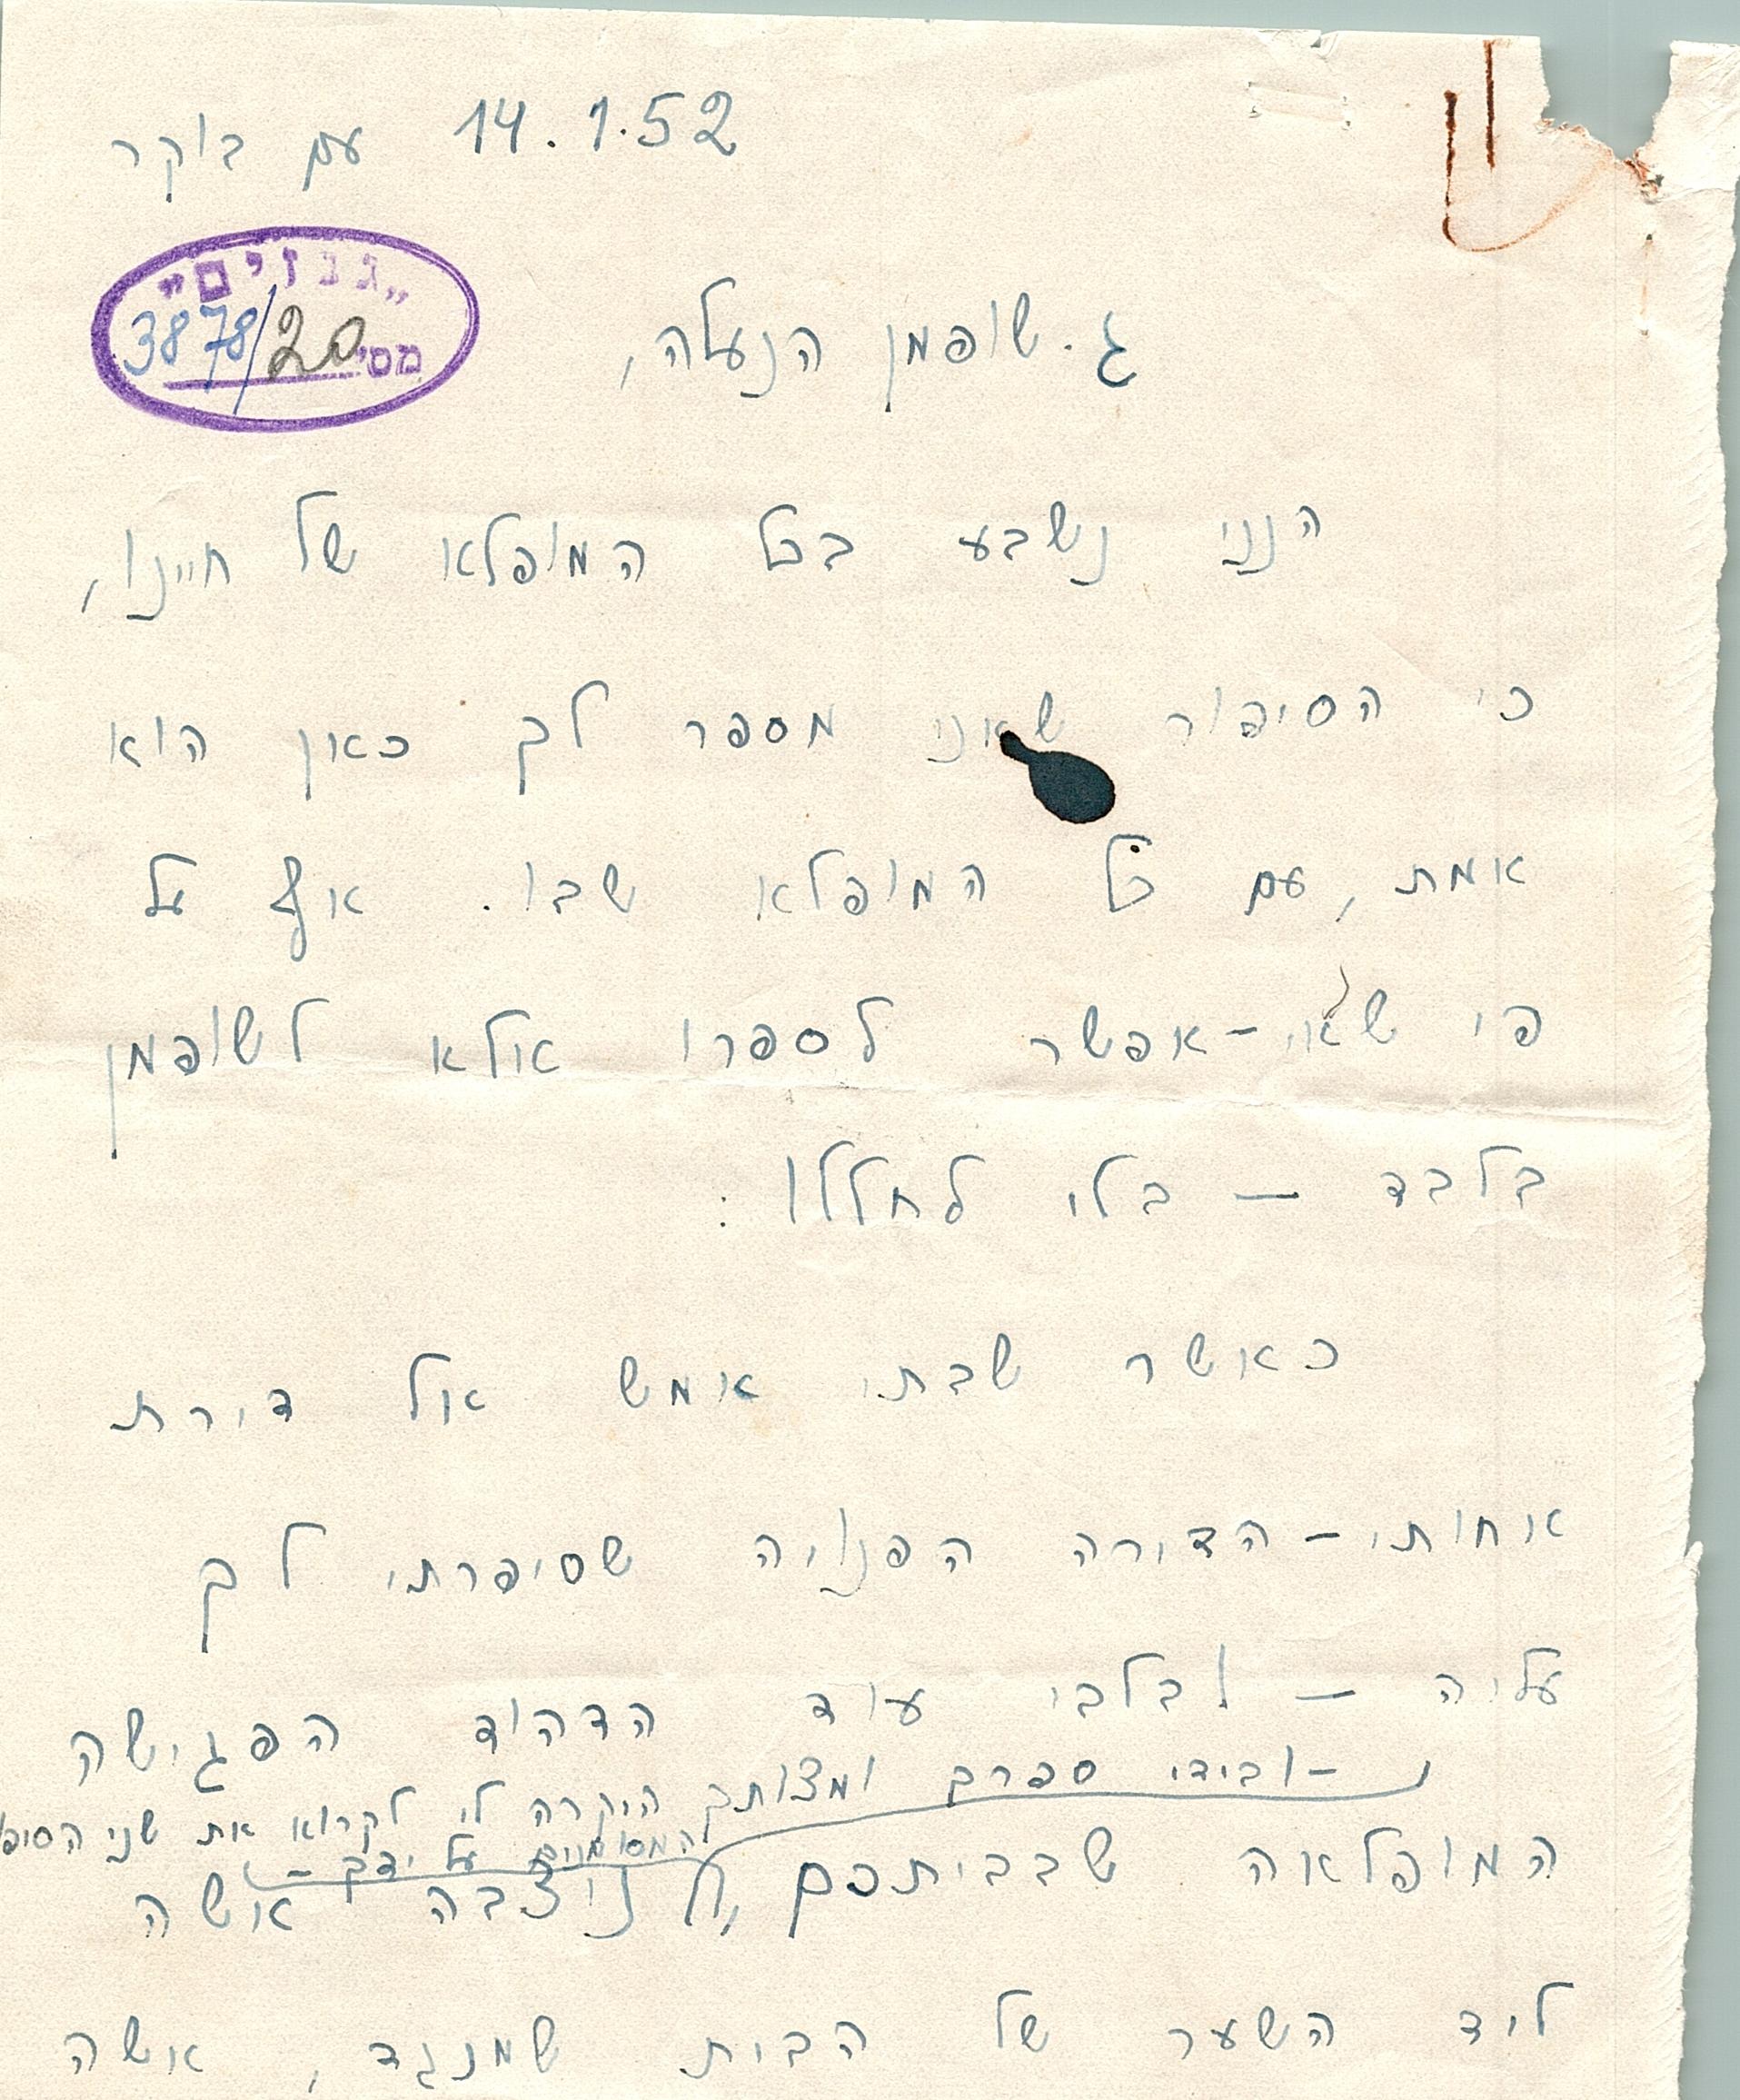 14.1.52 עם בוקר
"גנזים"
מס' 3878/20
ג. שופמן הנעלה,
הנני נשבע בכל המופלא של חיינו,
כי הסיפור שאני מספר לך כאן הוא
אמת, עם כל המופלא שבו. אף על
פי שאי-אפשר לספרו אלא לשופמן
בלבד – בלי לחללו:
כאשר שבתי אמש אל דירת
אחותי – הדירה הפנויה שסיפרתי לך
עליה – ובלבי עוד הדהוד הפגישה
– ובידי ספרך ומצותך היקרה לי לקרוא את שני הסיפו
המסומנים על ידך –
המופלאה שבביתכם, ניצבה אשה
ליד השער של הבית שמנגד, אשה